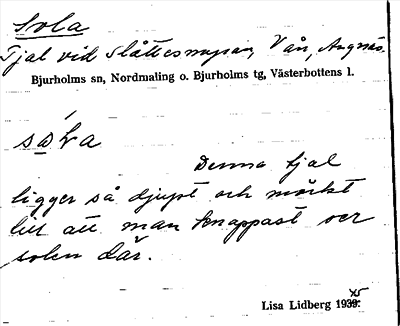 Sola
Tjal vid Slåttesmyran, V ån, Angnäs.
Bjurholms sn, Nordmaling o. Bjurholms tg, Västerbottens l.
Denna tjal
ligger så djupt och mörkt
till att man knappast ser
solen där.
Lisa Lidberg 19